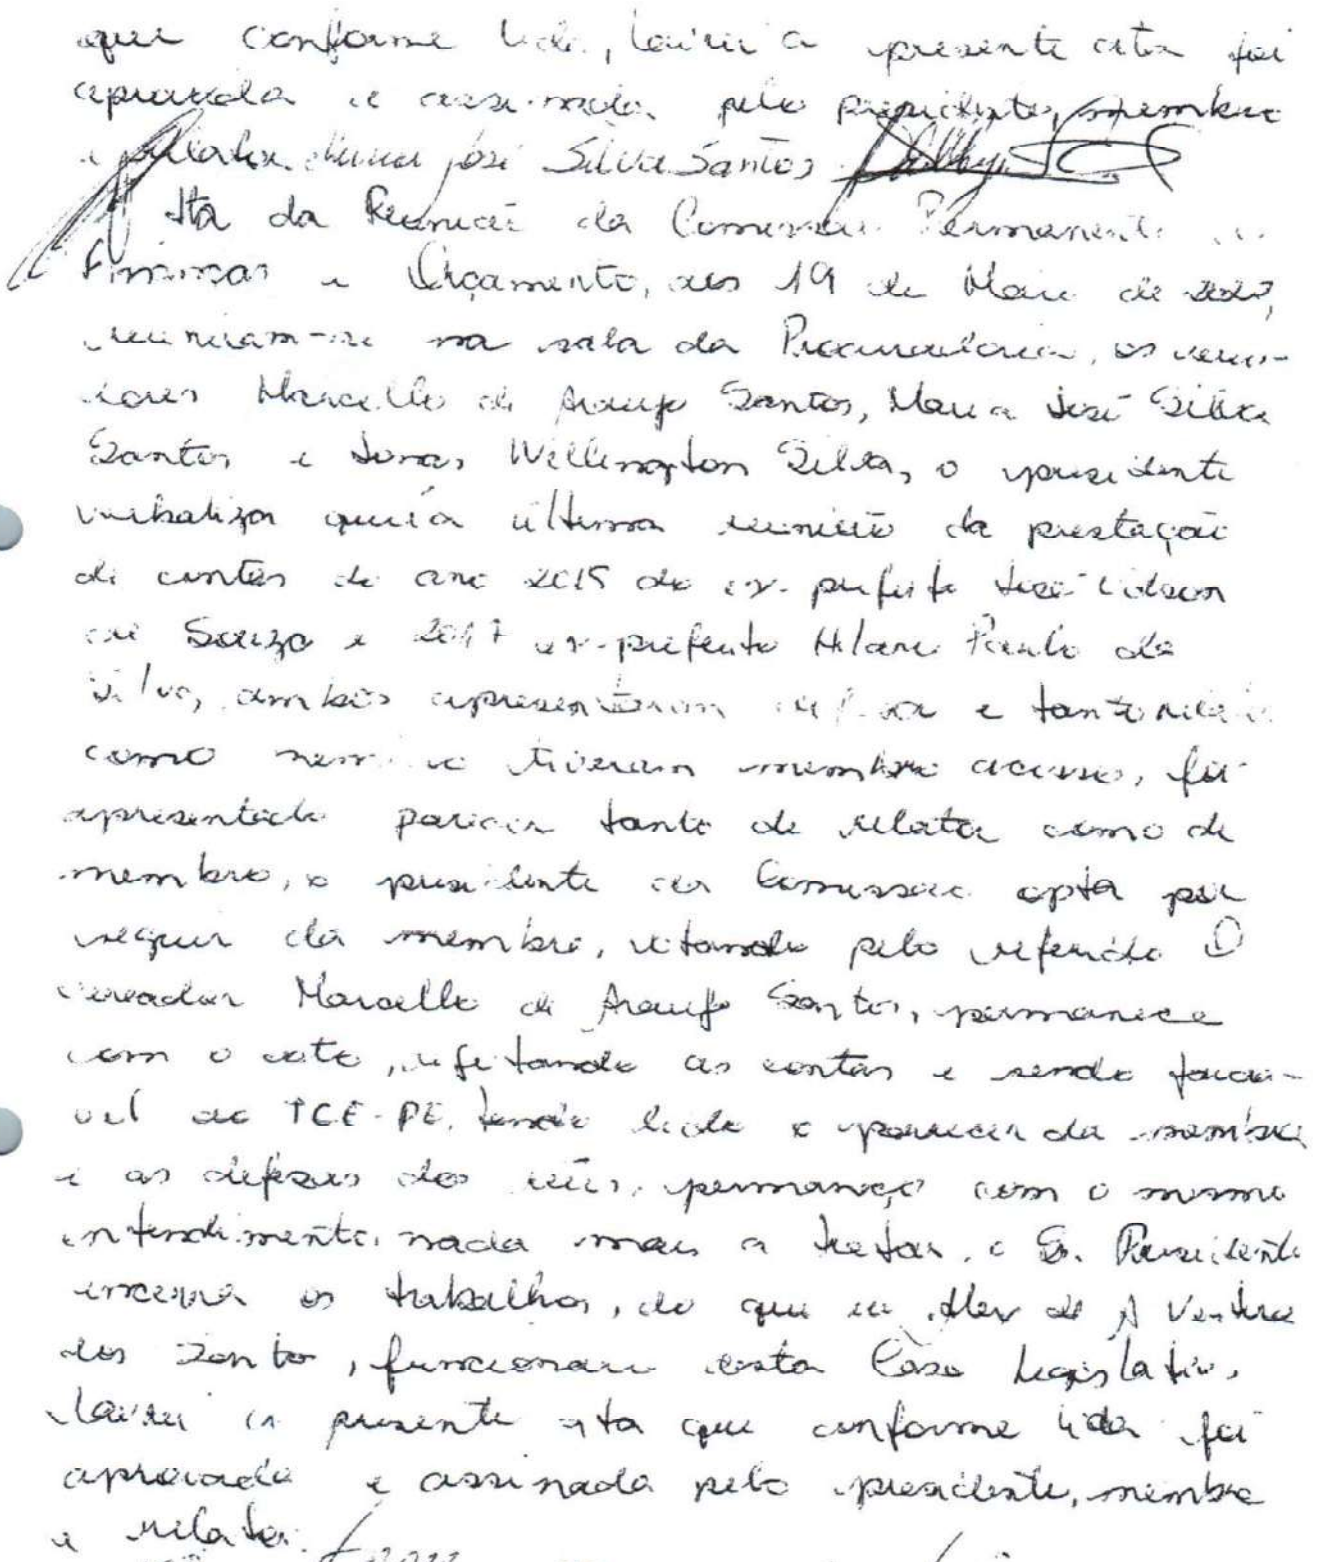 que conforme lida, lavrei a presente ata foi
aprovada e assinada pelo presidente, membro
e relator. Maria José Silva Santos
Ata da Reunião da Comissão Permanente de
Finanças e Orçamento, aos 19 de Maio de
reuniram-se na sala da Procuradoria, os verea-
dores Marcello de Araujo Santos, Maria José Silva
Santos e Jonas Wellington Silva, o presidente
verbaliza que a última reunião da prestação
de contas do ano 2015 do ex-prefeito José Edson
de Souza e 2017 ex-prefeito Hilario Paulo da
Silva, ambos apresentaram defesa e tanto relator
como membro tiveram acesso, foi
apresentado parecer tanto de relator como de
membro, o presidente da Comissão opta por
seguir da membro, votando pelo referido O
vereador Marcello de Araujo Santos, permanece
com o voto, rejeitando as contas e sendo favorá-
vel ao TCE-PE, tendo lido o parecer da membro
e as defesas dos réus, permaneço com o mesmo
entendimento, nada mais a tratar, o Sr. Presidente
encerra os trabalhos, do que eu, de A Ventura
dos Santos, funcionario desta Casa Legislativa,
lavrei a presente ata que conforme lida foi
aprovada e assinada pelo presidente, membro
e relator.